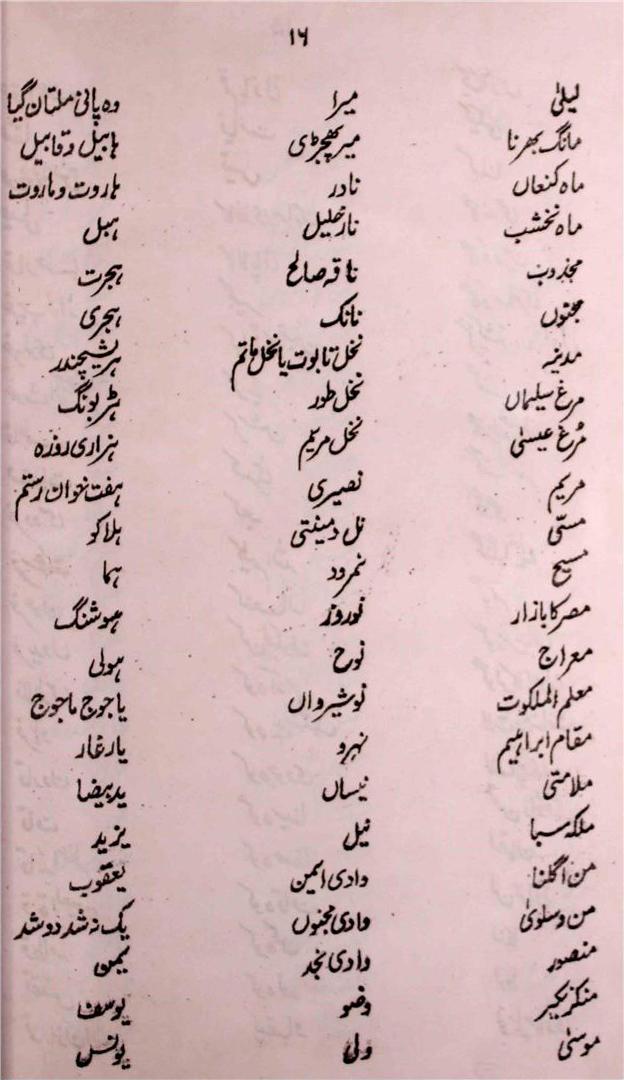 ۱۶
لیلیٰ
مانگ بھرنا
ماہ کنعاں
ماہ نخشب
مجذوب
مجنوں
مدینہ
مرغ سلیماں
مُرغ عیسیٰ
مریم
مستی
مسیح
مصر کا بازار
معراج
معلم الملکوت
مقام ابراہیم
ملامتی
ملکہ سبا
من اگلنا
من و سلویٰ
منصور
منکر نکیر
موسیٰ
میرا
میر بھچڑی
نادر
نار خلیل
ناقہ صالح
نانک
نخل تابوت یا نخل ماتم
نخل طور
نخل مریم
نصیری
نل دمینتی
نمرود
نوروز
نوح
نوشیرواں
نہرو
نیساں
نیل
وادی ایمن
وادی مجنوں
وادی نجد
وضو
ولی
وہ پانی ملتان گیا
ہابیل و قابیل
ہاروت و ماروت
ہبل
ہجرت
ہجری
ہریشچندر
ہڑبونگ
ہزاری روزہ
ہفت خوان رستم
ہلاکو
ہما
ہوشنگ
ہولی
یاجوج ماجوج
یار غار
ید بیضا
یزید
یعقوب
یک نہ شد دو شد
یمن
یوسف
یونس